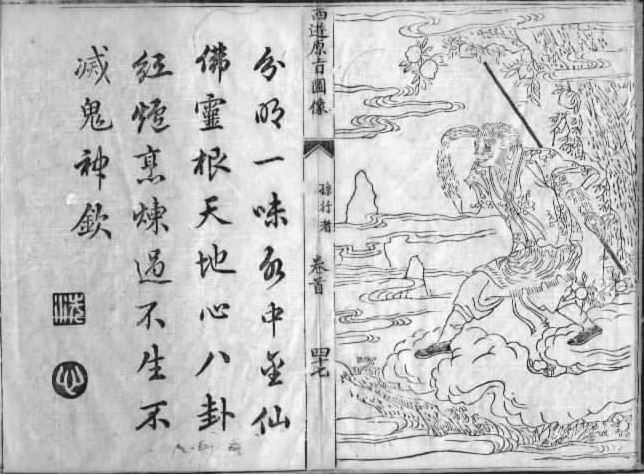 西遊原旨圖像
孫行者
卷首
四七
分明一味水中金仙
佛靈根天地心八卦
紅爐烹煉過不生不
滅鬼神欽